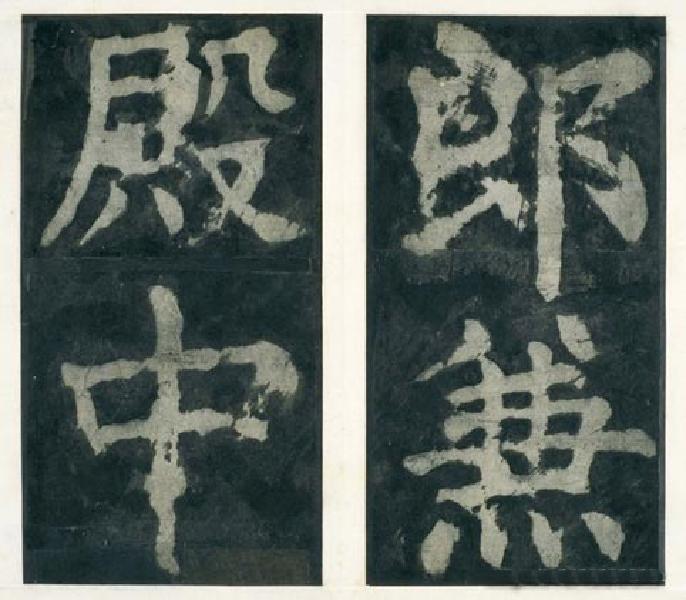 郎兼
殿中